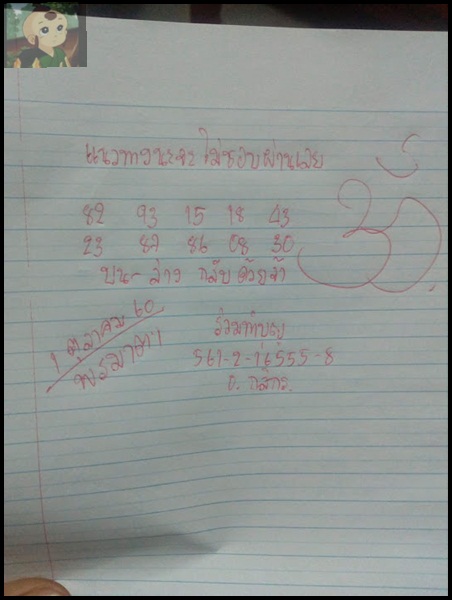 แนวทางนะจะ ไม่ชอบผ่านเลย
82 93 15 18 43
23 87 86 08 30
บน - ล่าง กลับด้วยจ้า
30
1 ตุลาคม 60
พรมาดา
ร่วมทำบุญ
561-2-16555-8
ธ. กสิกร.